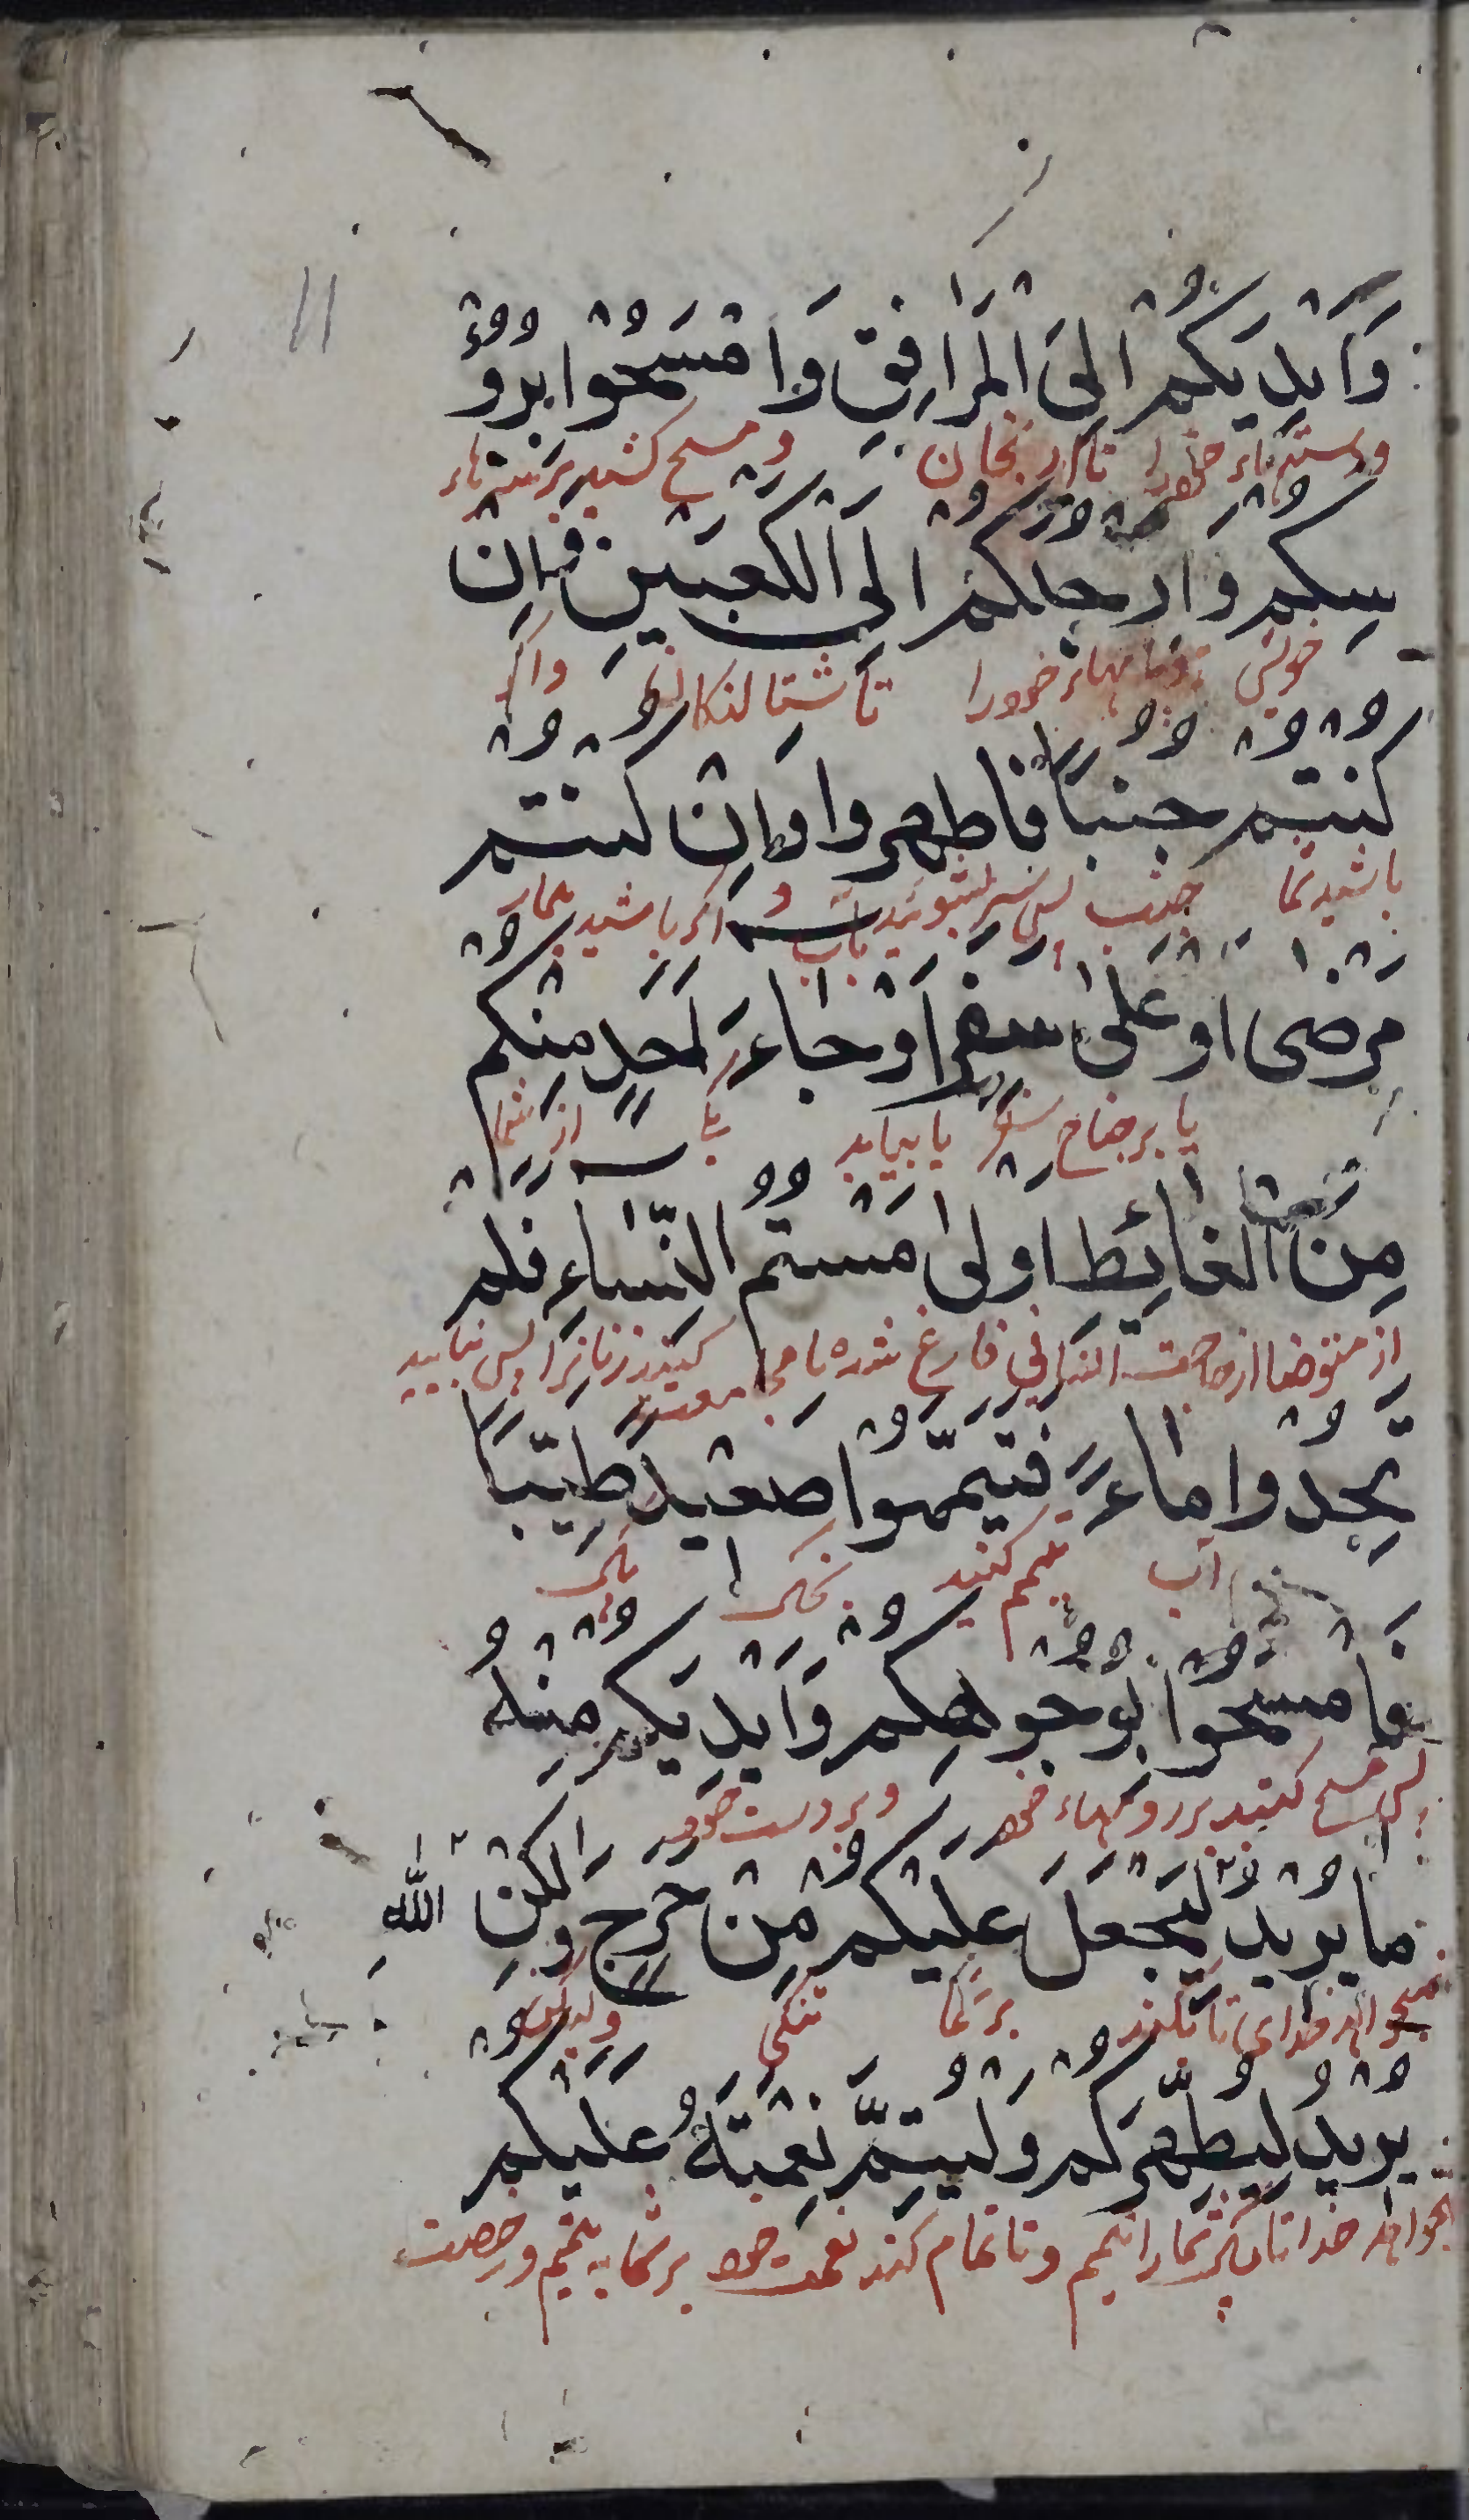 وَاَيْدِيَكُمْ اِلَى الْمَرَافِقِ وَامْسَحُوا بِرُؤُ
ودستهاء خودرا تا ارنجان ومسح كشيد برسرهاء
سِكُمْ وَاَرْجُلَكُمْ اِلَى الْكَعْبَيْنِ فَاِنْ
خويش وپايهاء خودرا تا شتالنكان واكر
كُنْتُمْ جُنُبًا فَاطَّهَّرُوا وَاِنْ كُنْتُمْ
باشيد شما جنب پس سر بشوييد بآب و اكر باشيد بيمار
مَرْضٰى اَوْ عَلٰى سَفَرٍ اَوْ جَاءَ اَحَدٍ مِنْكُمْ
يا برجناح سفر يا بيايد يكى از شما
مِنَ الْغَائِطِ اَوْ لٰمَسْتُمُ النِّسَاءِ فَلَمْ
از متوضا از حاجت انسانى فارغ شده يا مجامعت كنيد زنانرا پس نيابيد
تَجِدُوا مَاءً فَتَيَمَّمُوا صَعِيدًا طَيِّبًا
آب تيمم كنيد بخاك پاك
فَامْسَحُوا بِوُجُوهِكُمْ وَاَيْدِيَكُمْ مِنْهُ
پس مسح كنيد بر رويهاء خود وبر دست خود
مَا يُرِيدُ لِيَجْعَلَ عَلَيْكُمْ مِنْ حَرَجٍ وَلٰكِنْ اللّٰهِ
نميخواهد خداى تا بكند بر شما تنكى وليكن
يُرِيدُ لِيُطَهِّرَكُمْ وَلِيُتِمَّ نِعْمَتَهُ عَلَيْكُمْ
بخواهد خدا تا پاك كند شمارا تيمم وتا تمام كند نعمت خود بر شما به تيمم ورخصت